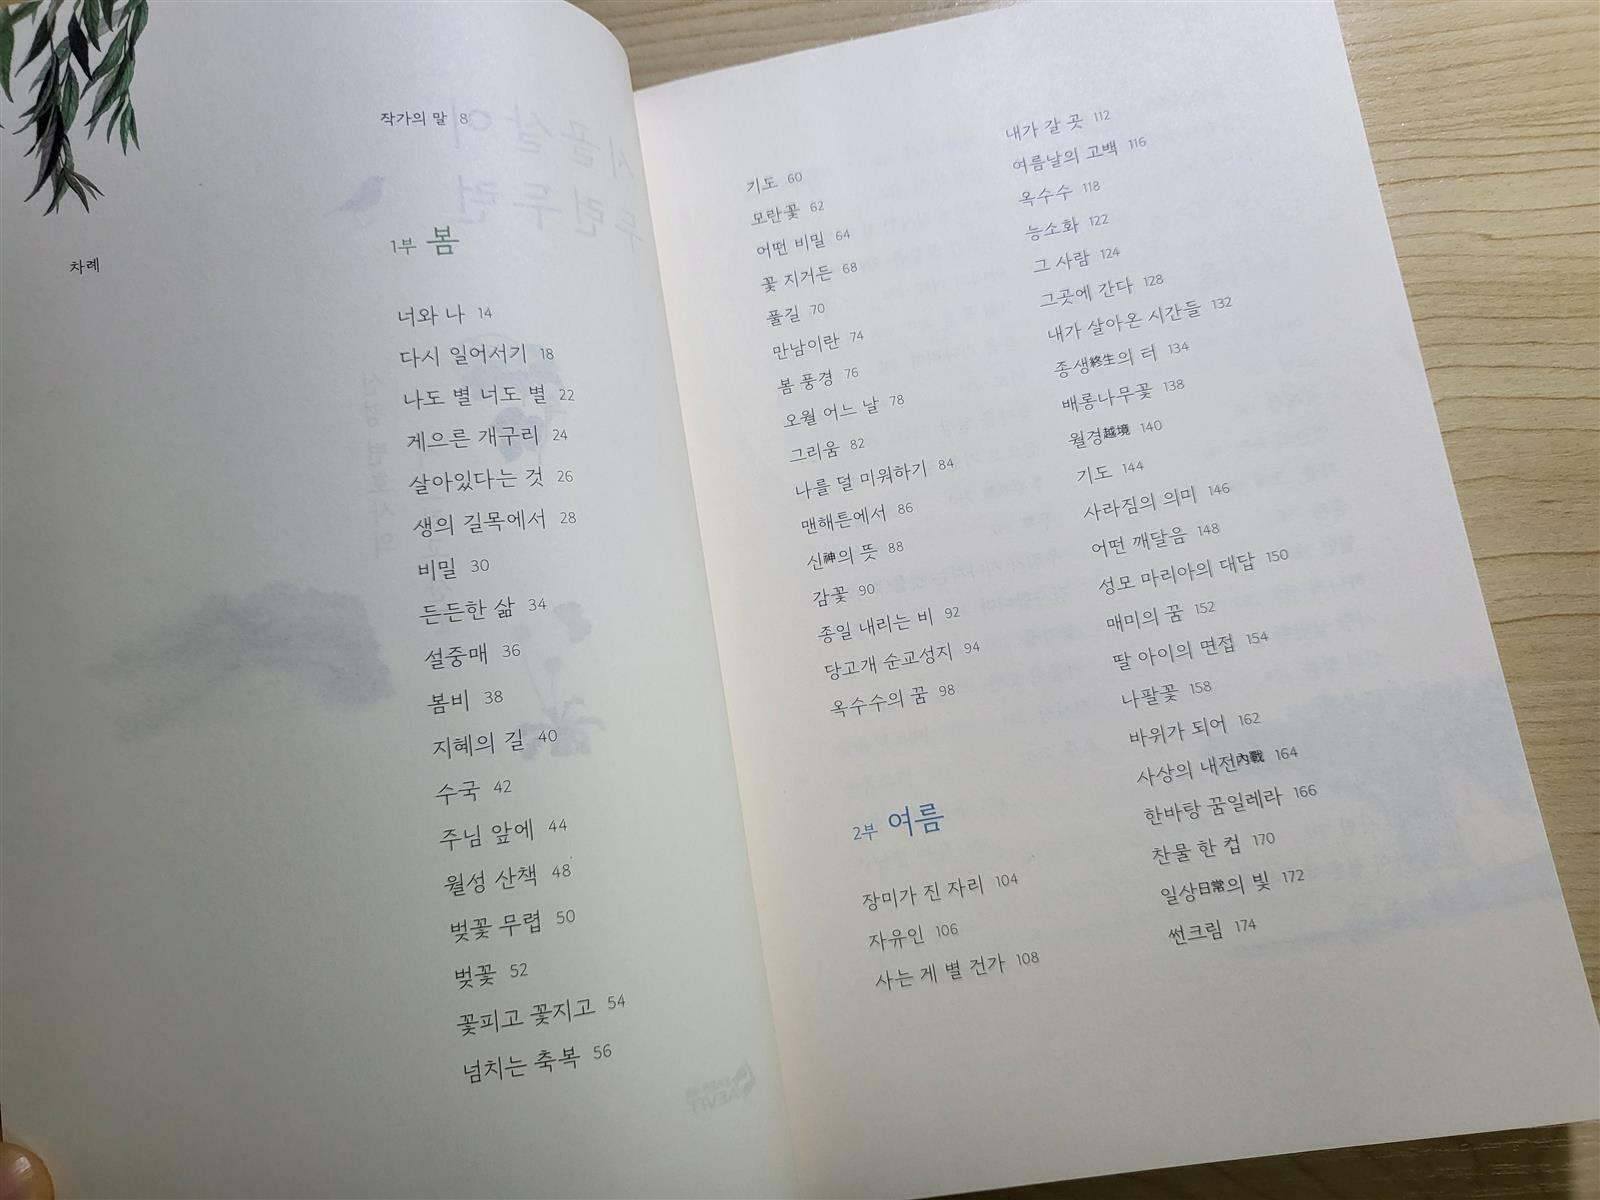 차례
작가의 말 8
1부 봄
너와 나 14
다시 일어서기 18
나도 별 너도 별 22
게으른 개구리 24
살아있다는 것 26
생의 길목에서 28
비밀 30
든든한 삶 34
설중매 36
봄비 38
지혜의 길 40
수국 42
주님 앞에 44
월성 산책 48
벚꽃 무렵 50
벚꽃 52
꽃피고 꽃지고 54
넘치는 축복 56
기도 60
모란꽃 62
어떤 비밀 64
꽃 지거든 68
풀길 70
만남이란 74
봄 풍경 76
오월 어느 날 78
그리움 82
나를 덜 미워하기 84
맨해튼에서 86
신神의 뜻 88
감꽃 90
종일 내리는 비 92
당고개 순교성지 94
옥수수의 꿈 98
2부 여름
장미가 진 자리 104
자유인 106
사는 게 별 건가 108
내가 갈 곳 112
여름날의 고백 116
옥수수 118
능소화 122
그 사람 124
그곳에 간다 128
내가 살아온 시간들 132
종생終生의 터 134
배롱나무꽃 138
월경越境 140
기도 144
사라짐의 의미 146
어떤 깨달음 148
성모 마리아의 대답 150
매미의 꿈 152
딸 아이의 면접 154
나팔꽃 158
바위가 되어 162
사상의 내전內戰 164
한바탕 꿈일레라 166
찬물 한 컵 170
일상日常의 빛 172
썬크림 174